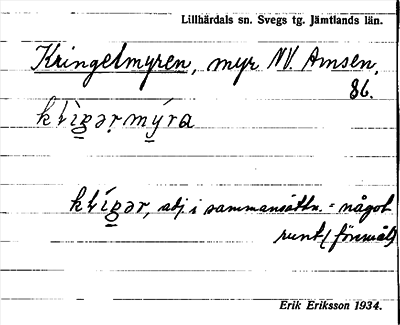 Lillhärdals sn. Svegs tg. Jämtlands län.
Kringelmyren, myr NV. Amsen,
86.
adj. i sammansättn. = något
runt (föremål)
Erik Eriksson 1934.